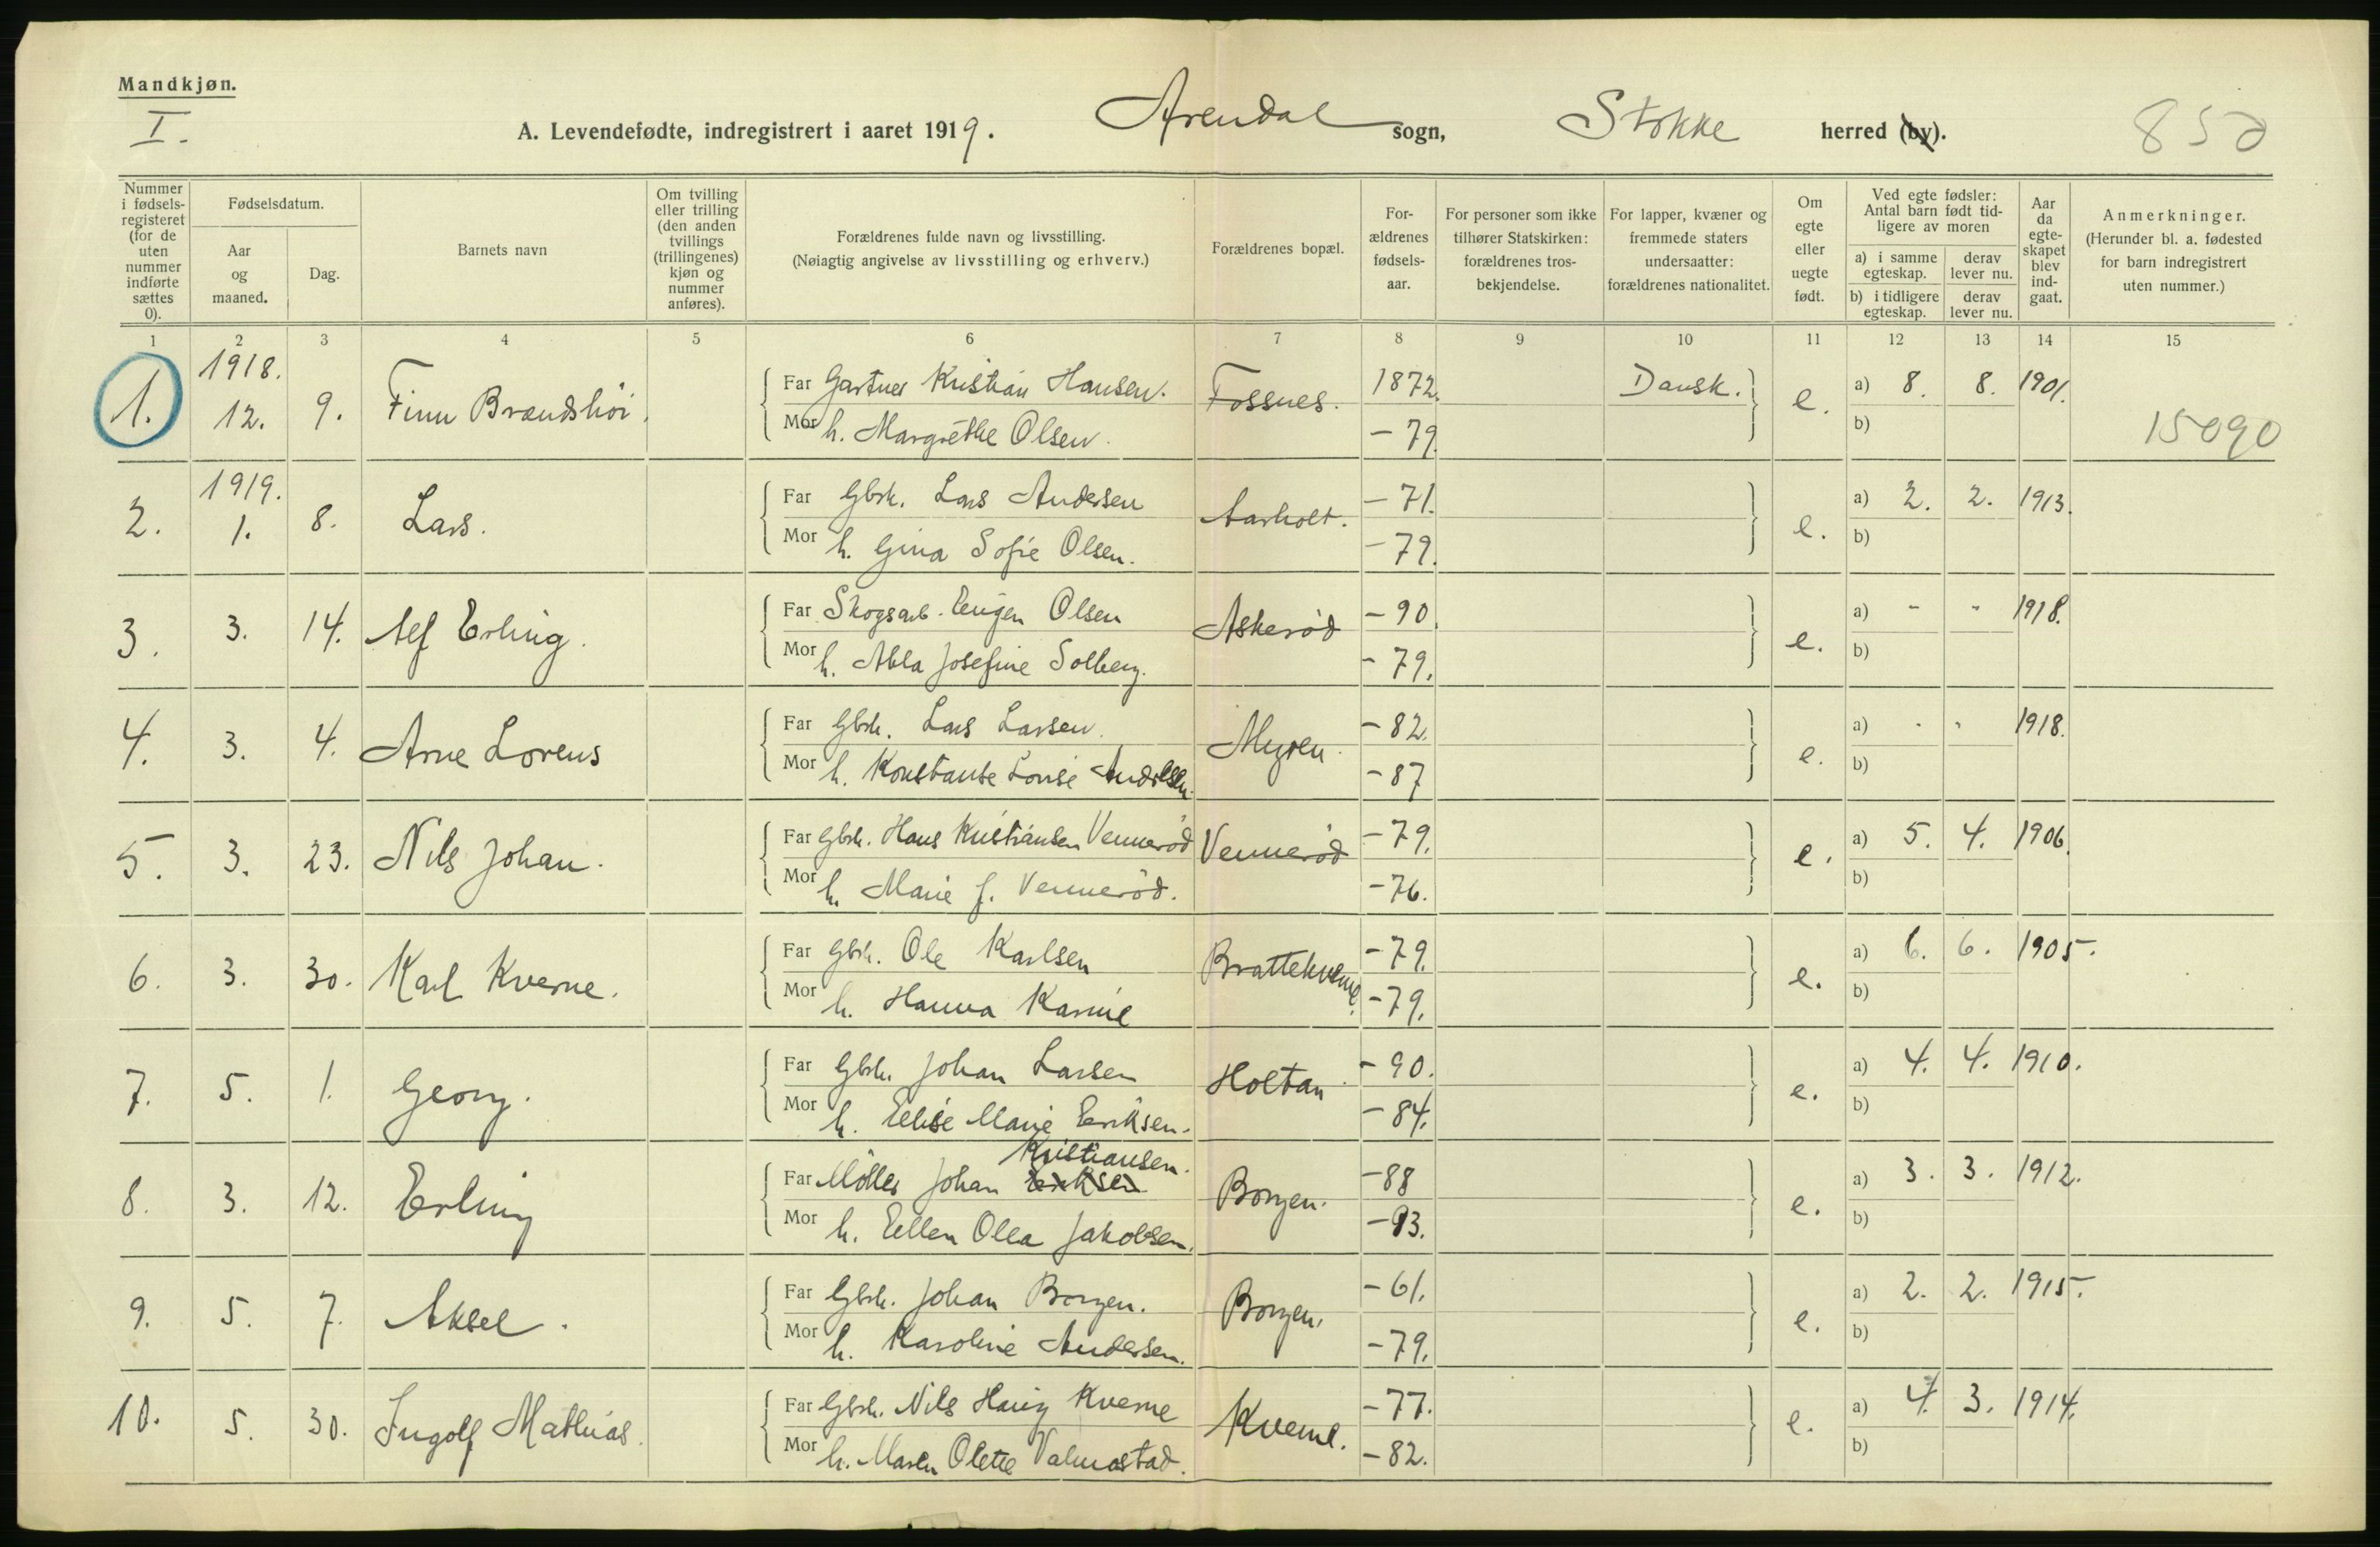 Mandkjøn.
I.
A. Levendefødte, indregistrert i aaret 1919. Arendal sogn, Stokke herred (by). 850
Nummer i fødsels-registeret (for de uten nummer indførte sættes 0).
Fødselsdatum.
Aar og maaned.
Dag.
Barnets navn
Om tvilling eller trilling (den anden tvillings (trillingenes) kjøn og nummer anføres).
Forældrenes fulde navn og livsstilling.
(Nøiagtig angivelse av livsstilling og erhverv.)
Forældrenes bopæl.
For-ældrenes fødsels-aar.
For personer som ikke tilhører Statskirken: forældrenes tros-bekjendelse.
For lapper, kvæner og fremmede staters undersaatter: forældrenes nationalitet.
Om egte eller uegte født.
Ved egte fødsler: Antal barn født tid-ligere av moren
a) i samme egteskap.
derav lever nu.
b) i tidligere egteskap.
derav lever nu.
Aar da egte-skapet blev ind-gaat.
Anmerkninger.
(Herunder bl. a. fødested for barn indregistrert uten nummer.)
1 2 3 4 5 6 7 8 9 10 11 12 13 14 15
1. 1918. 12. 9. Finn Brændshöi. Far Gartner Kristian Hansen. Fossnes. 1872. Dansk. e. a) 8. 8. 1901.
Mor h. Margrethe Olsen. – 79. b) 15090
2. 1919. 1. 8. Lars. Far Gbrk. Lars Andersen Aarholt. – 71. e. a) 2. 2. 1913.
Mor h. Gina Sofie Olsen. – 79. b)
3. 3. 14. Alf Erling. Far Skogsarb. Eugen Olsen Askeröd – 90. e. a) - - 1918.
Mor h. Abla Josefine Solberg. – 79. b)
4. 3. 4. Arne Lorens Far Gbrk. Lars Larsen. Myren. – 82. e. a) - - 1918.
Mor h. Konstanse Lovise Andersen. – 87 b)
5. 3. 23. Nils Johan. Far Gbrk. Hans Kristiansen Venneröd Venneröd – 79. e. a) 5. 4. 1906.
Mor h. Marie J. Venneröd. – 76. b)
6. 3. 30. Karl Kverne. Far Gbrk. Ole Karlsen Brattekverne. – 79. e. a) 6. 6. 1905.
Mor h. Hanna Karine – 79. b)
7. 5. 1. Georg. Far Gbrk. Johan Larsen Holtan – 90. e. a) 4. 4. 1910.
Mor h. Ellise Marie Eriksen. – 84. b)
Kristiansen.
8. 3. 12. Erling Far Möller Johan Eriksen Borgen. – 88 e. a) 3. 3. 1912.
Mor h. Ellen Olea Jakobsen. – 93. b)
9. 5. 7. Aksel. Far Gbrk. Johan Borgen. Borgen. – 61. e. a) 2. 2. 1915.
Mor h. Karoline Andersen. – 79. b)
10. 5. 30. Ingolf Mathias. Far Gbrk. Nils Havig Kverne Kverne. – 77. e. a) 4. 3. 1914.
Mor h. Maren Olette Valmestad. – 82. b)